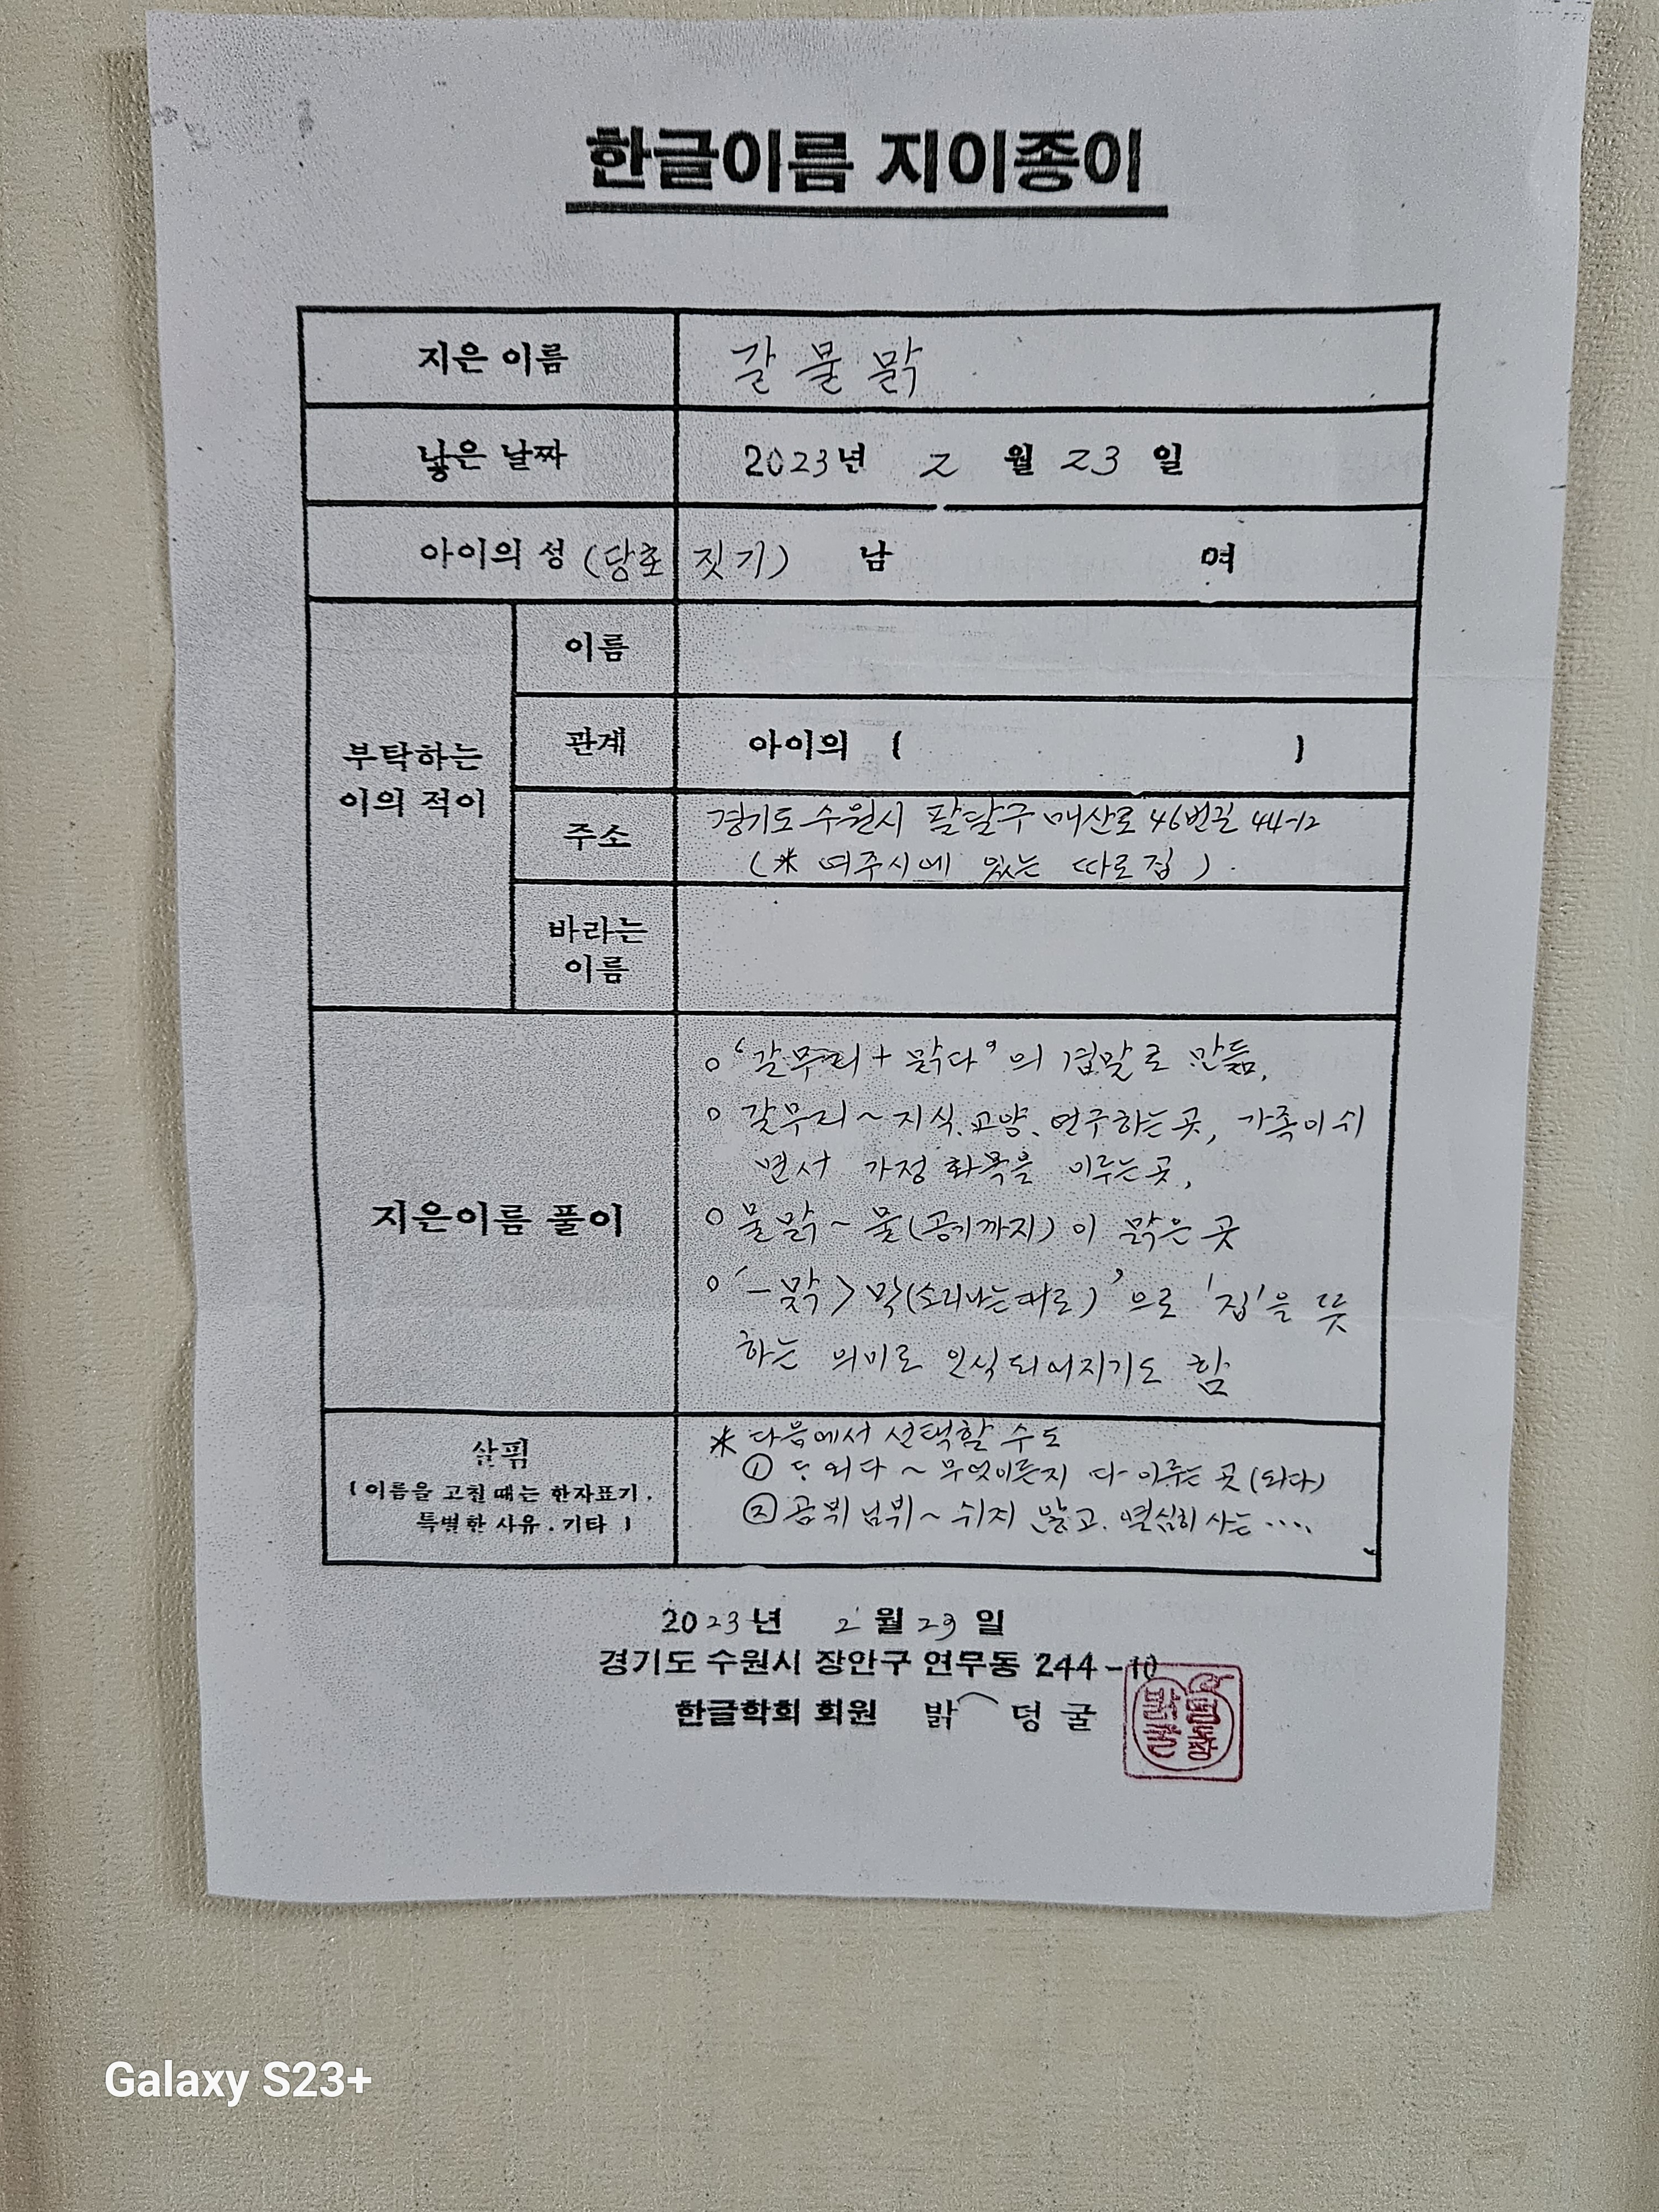 한글이름 지이종이
지은 이름 갈물맑
낳은 날짜 2023년 2 월 23 일
아이의 성 (당호 짓기) 남 여
부탁하는
이의 적이
이름
관계 아이의 ( )
주소
경기도 수원시 팔달구 매산로 46번길 44-12
(※ 여주시에 있는 따로집).
바라는
이름
지은이름 풀이
○ ‘갈무리 + 맑다’의 겹말로 만듦.
○ 갈무리 ~ 지식.교양.연구하는 곳, 가족이 쉬
면서 가정 화목을 이루는 곳,
○ 물맑 ~ 물(공기까지)이 맑은 곳
○ ‘-맑 > 막(소리나는대로)’으로 '집'을 뜻
하는 의미로 인식되어지기도 함
살핌
(이름을 고칠 때는 한자표기.
특별한 사유.기타)
※ 다음에서 선택할 수도
① 외다 ~ 무엇이든지 다 이루는 곳(되다)
② 곰뷔님뷔 ~ 쉬지 않고. 열심히 사는 ....
2023년 2 월 23 일
경기도 수원시 장안구 연무동 244-10
한글학회 회원 밝 덩굴